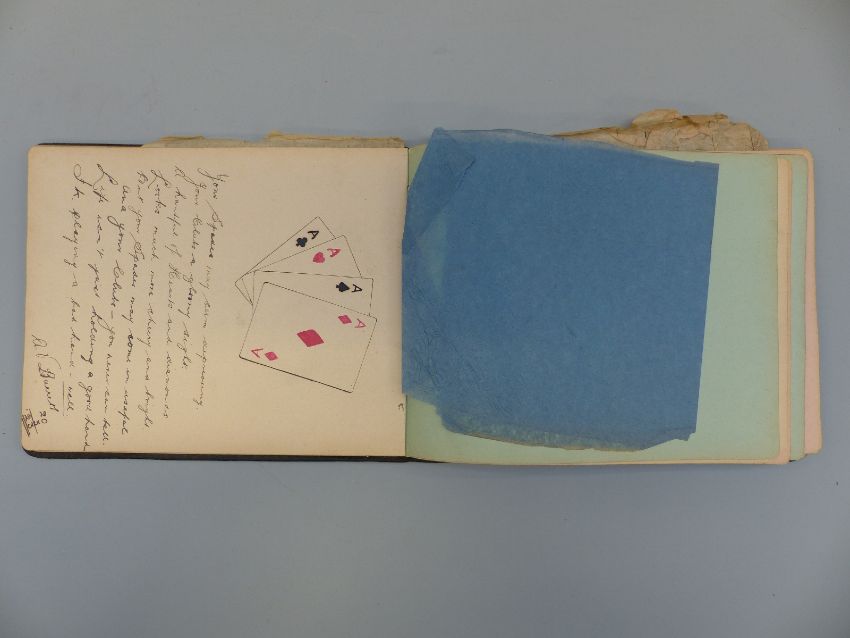 Your Spades may seem depressing,
Your Clubs a gloomy sight.
A handful of Hearts and diamonds
Looks much more cheery and bright
But your Spades may come in useful
And your Clubs – you never can tell
Life isn't just holding a good hand
It's playing a bad hand – well
20
A
A
A
A
A